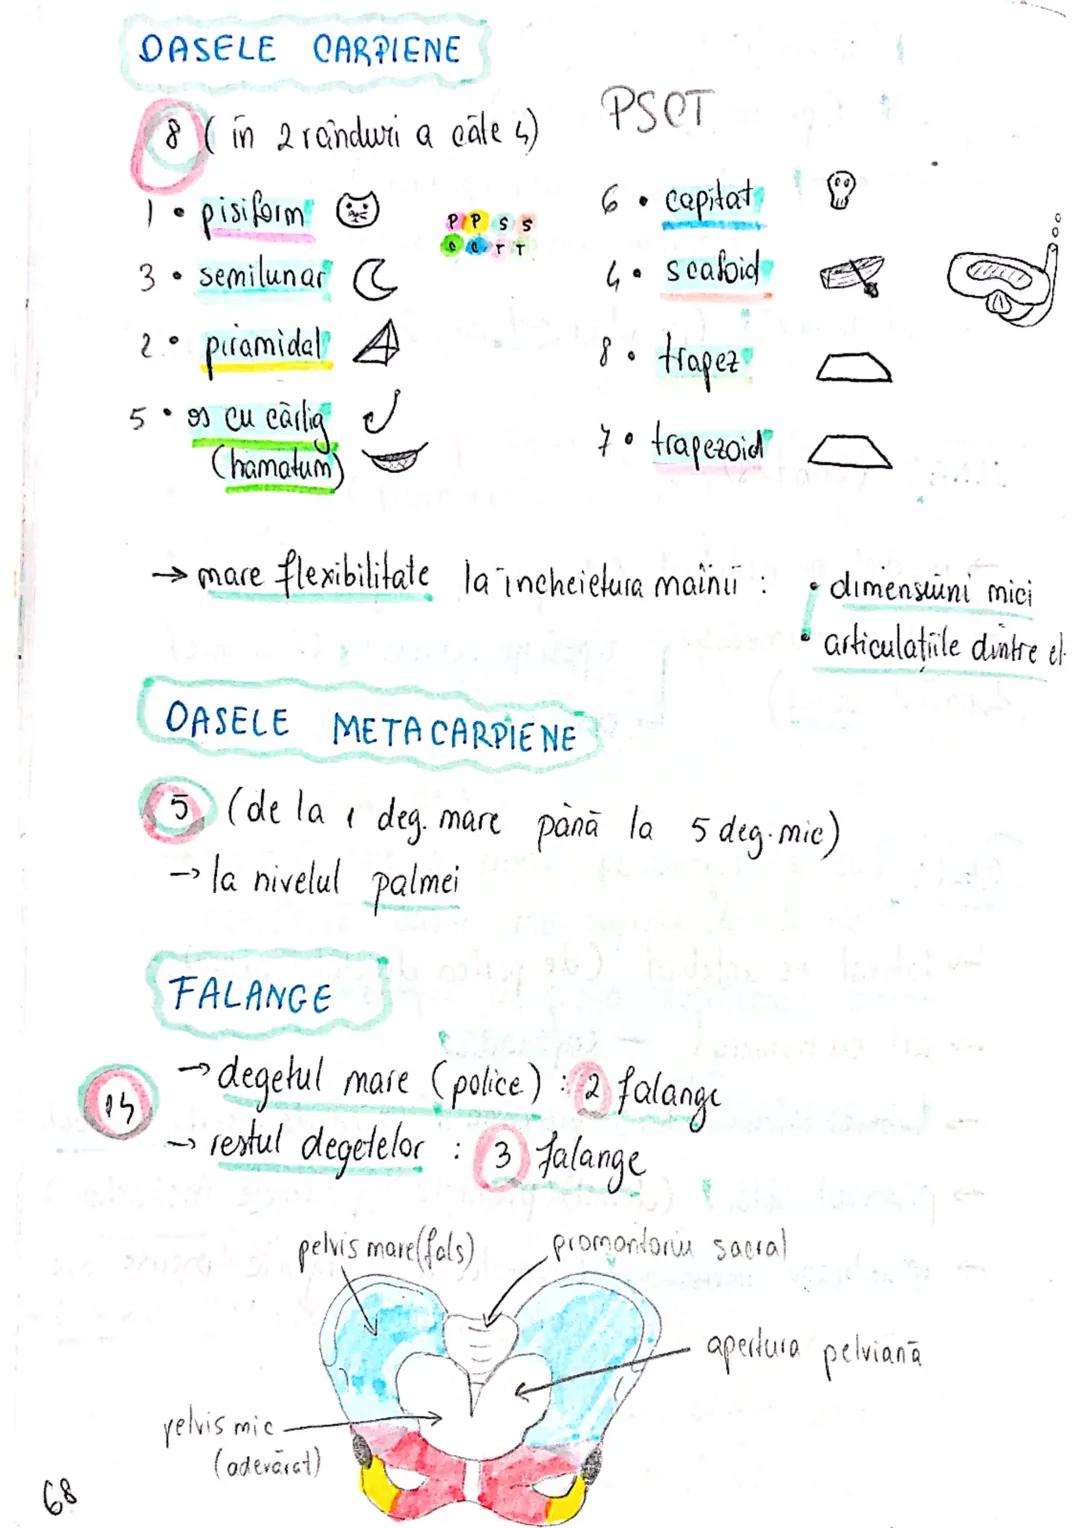 OASELE CARPIENE
8 (în 2 rânduri a câte 4)
PSCT
1 • pisiform
3 • semilunar
2 • piramidal
5 • os cu cârlig
(hamatum)
P P S S
C C T T
6 • capitat
4 • scafoid
8 • trapez
7 • trapezoid
→ mare flexibilitate la încheietura mâinii :
• dimensiuni mici
• articulațiile dintre el
OASELE METACARPIENE
5 (de la 1 deg. mare până la 5 deg. mic)
→ la nivelul palmei
FALANGE
14
→ degetul mare (police) : 2 falange
→ restul degetelor : 3 falange
pelvis mare (fals)
promontoriu sacral
apertura pelviană
pelvis mic
(adevărat)
68